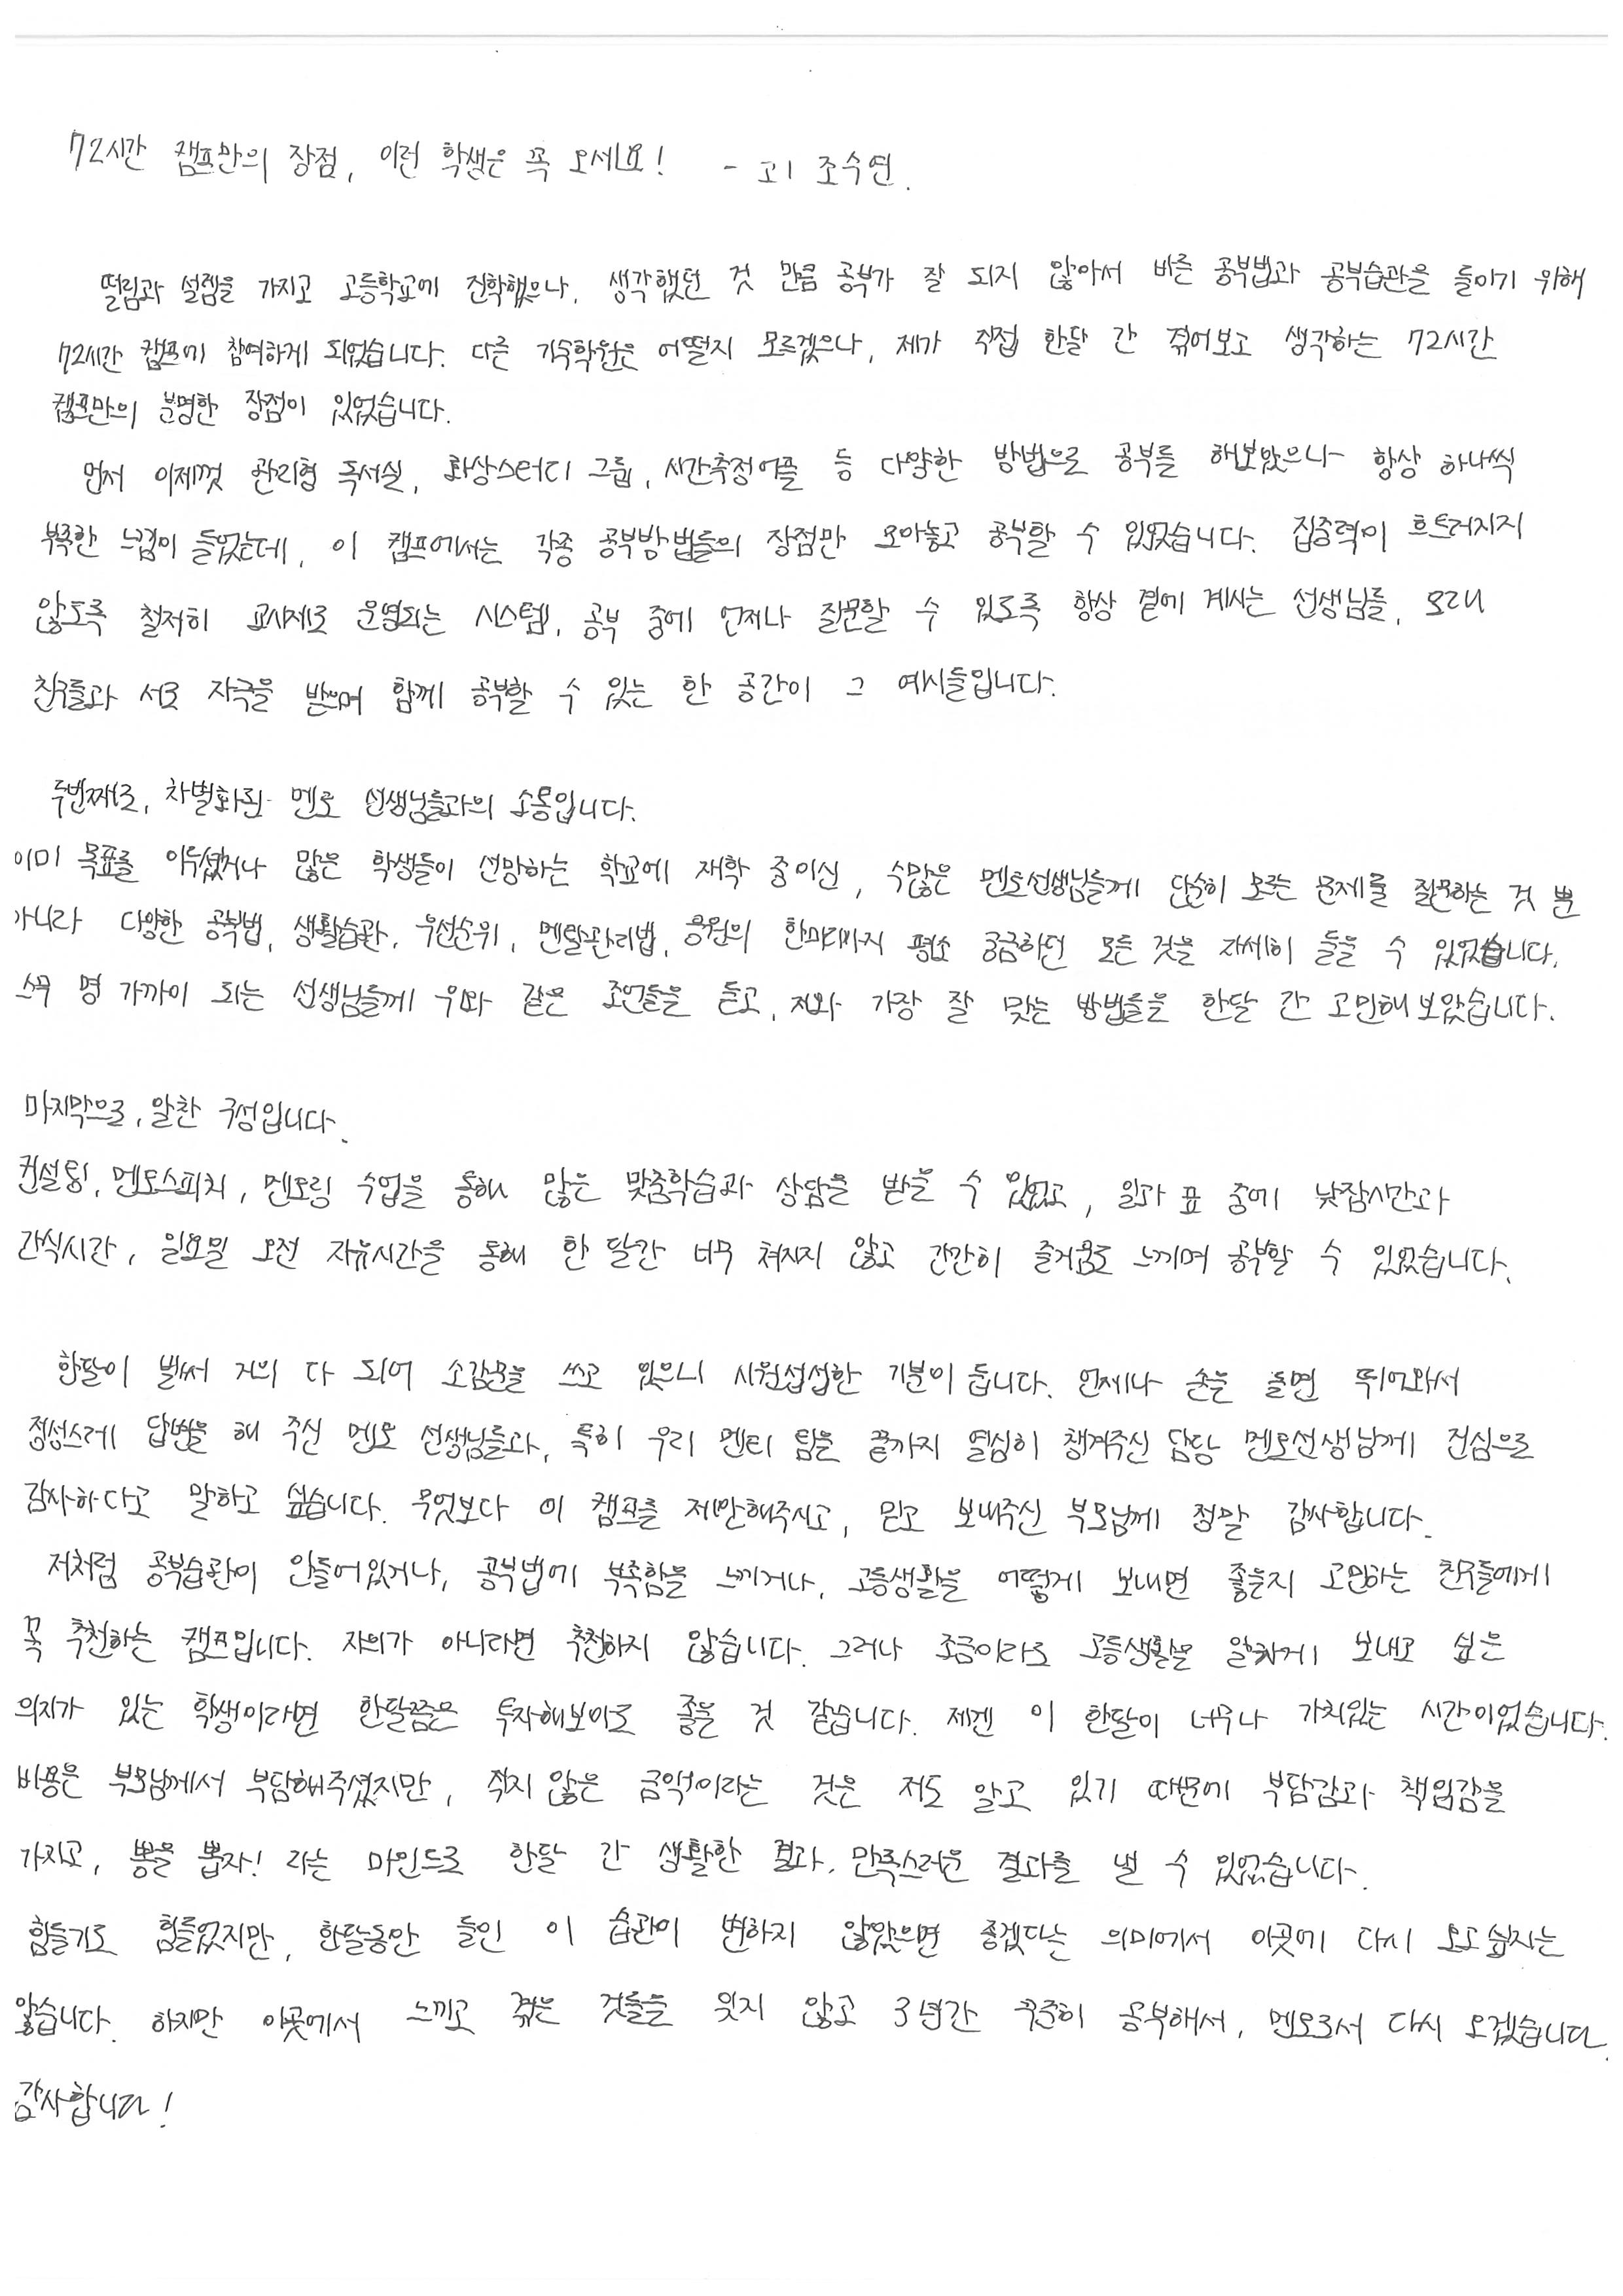 72시간 캠프만의 장점, 이런 학생은 꼭 오세요! - 고1 조수연.
떨림과 설렘을 가지고 고등학교에 진학했으나, 생각했던 것 만큼 공부가 잘 되지 않아서 바른 공부법과 공부습관을 들이기 위해
72시간 캠프에 참여하게 되었습니다. 다른 기숙학원은 어떨지 모르겠으나, 제가 직접 한달 간 겪어보고 생각하는 72시간
캠프만의 분명한 장점이 있었습니다.
먼저 이제껏 관리형 독서실, 화상스터디 그룹, 시간측정어플 등 다양한 방법으로 공부를 해보았으나 항상 하나씩
부족한 느낌이 들었는데, 이 캠프에서는 각종 공부방법들의 장점만 모아놓고 공부할 수 있었습니다. 집중력이 흐트러지지
않도록 철저히 교시제로 운영되는 시스템, 공부 중에 언제나 질문할 수 있도록 항상 곁에 계시는 선생님들, 또래
친구들과 서로 자극을 받으며 함께 공부할 수 있는 한 공간이 그 예시들입니다.
두번째로, 차별화된 멘토 선생님들과의 소통입니다.
이미 목표를 이루셨거나 많은 학생들이 선망하는 학교에 재학 중이신, 수많은 멘토선생님들께 단순히 모르는 문제를 질문하는 것 뿐
아니라 다양한 공부법, 생활습관, 우선순위, 멘탈관리법, 응원의 한마디까지 평소 궁금하던 모든 것을 자세히 들을 수 있었습니다.
스무 명 가까이 되는 선생님들께 위와 같은 조언들을 듣고, 저와 가장 잘 맞는 방법들을 한달 간 고민해 보았습니다.
마지막으로, 알찬 구성입니다.
컨설팅, 멘토스피치, 멘토링 수업을 통해 많은 맞춤학습과 상담을 받을 수 있었고, 일과 표 중에 낮잠시간과
간식시간, 일요일 오전 자유시간을 통해 한 달간 너무 처지지 않고 간간히 즐거움도 느끼며 공부할 수 있었습니다.
한달이 벌써 거의 다 되어 소감문을 쓰고 있으니 시원섭섭한 기분이 듭니다. 언제나 손을 들면 뛰어와서
정성스레 답변을 해 주신 멘토 선생님들과, 특히 우리 멘티 팀을 끝까지 열심히 챙겨주신 담당 멘토선생님께 진심으로
감사하다고 말하고 싶습니다. 무엇보다 이 캠프를 제안해주시고, 믿고 보내주신 부모님께 정말 감사합니다.
저처럼 공부습관이 안들어있거나, 공부법에 부족함을 느끼거나, 고등생활을 어떻게 보내면 좋을지 고민하는 친구들에게
꼭 추천하는 캠프입니다. 자의가 아니라면 추천하지 않습니다. 그러나 조금이라도 고등생활을 알차게 보내고 싶은
의지가 있는 학생이라면 한달쯤은 투자해보아도 좋을 것 같습니다. 제겐 이 한달이 너무나 가치있는 시간이었습니다.
비용은 부모님께서 부담해주셨지만, 작지 않은 금액이라는 것은 저도 알고 있기 때문에 부담감과 책임감을
가지고, 뽕을 뽑자! 라는 마인드로 한달 간 생활한 결과, 만족스러운 결과를 낼 수 있었습니다.
힘들기도 힘들었지만, 한달동안 들인 이 습관이 변하지 않았으면 좋겠다는 의미에서 이곳에 다시 오고싶지는
않습니다. 하지만 이곳에서 느끼고 겪은 것들을 잊지 않고 3년간 꾸준히 공부해서, 멘토로서 다시 오겠습니다.
감사합니다!